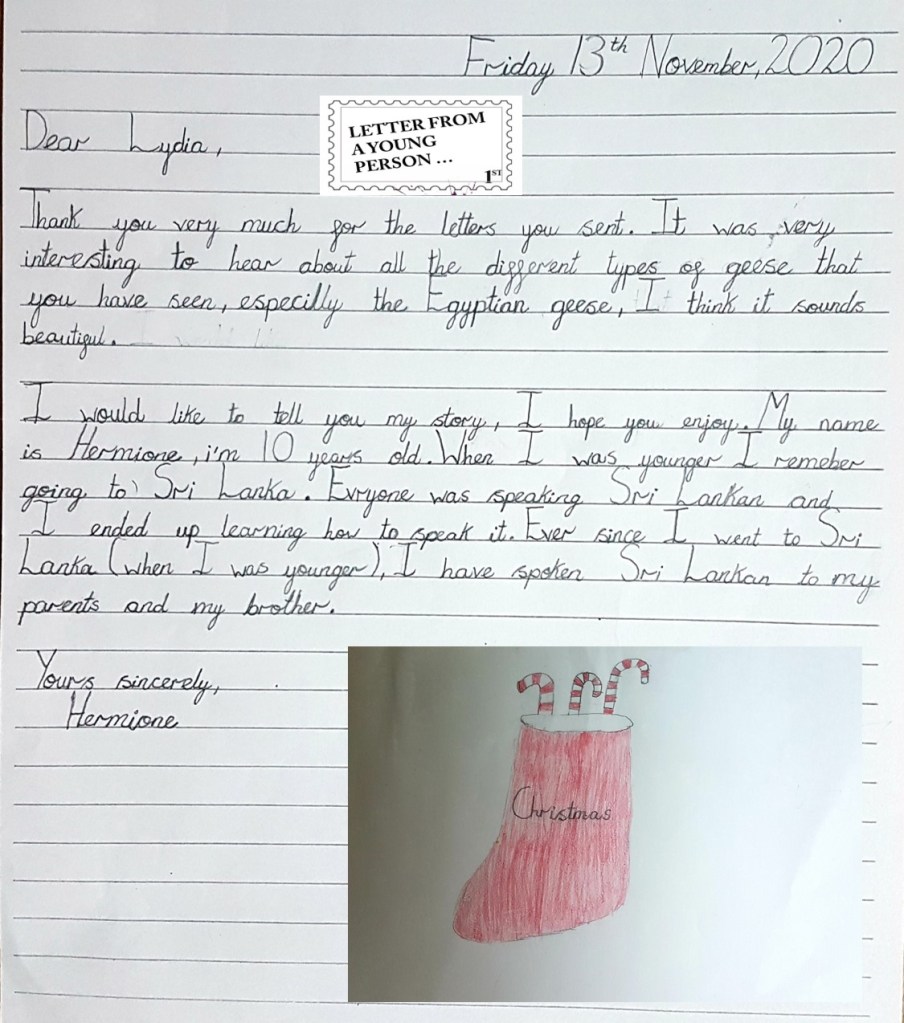 Friday 13th November, 2020
LETTER FROM
A YOUNG
PERSON ...
1ST
Dear Lydia,
Thank you very much for the letters you sent. It was very
interesting to hear about all the different types of geese that
you have seen, especilly the Egyptian geese, I think it sounds
beautiful.
I would like to tell you my story, I hope you enjoy. My name
is Hermione, i'm 10 years old. When I was younger I remeber
going to Sri Lanka. Evryone was speaking Sri Lankan and
I ended up learning how to speak it. Ever since I went to Sri
Lanka (when I was younger), I have spoken Sri Lankan to my
parents and my brother.
Yours sincerely,
Hermione
Christmas